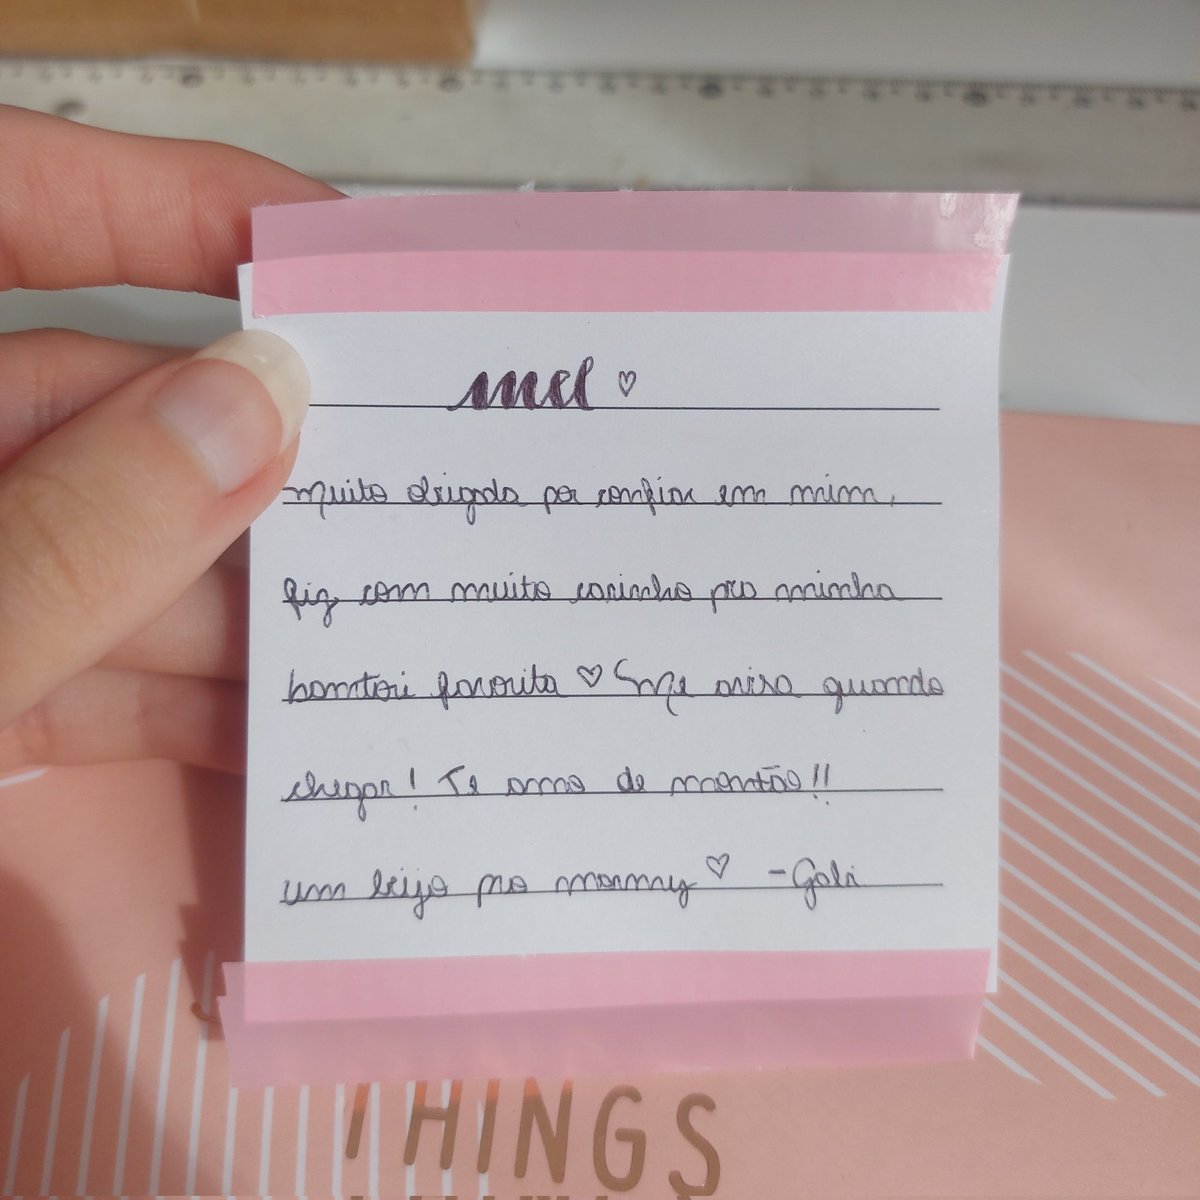 mel ♡
muito obrigada por confiar em mim,
fiz com muito carinho pra minha
hamtori favorita ♡ Me avisa quando
chegar! Te amo de montão!!
um beijo pra mommy ♡ -Gabi
THINGS